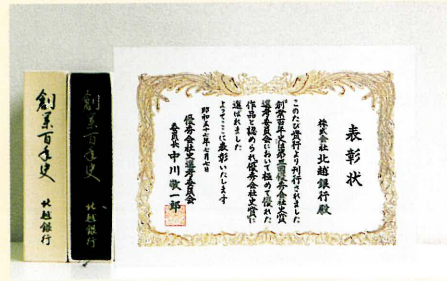 創業百年史
北越銀行
創業百年史
北越銀行
表彰状
株式会社 北越銀行殿
このたび貴行より刊行されました
創業百年史は第三回優秀会社史賞
選考委員会において極めて優れた
作品と認められ優秀会社史賞に
選ばれました
よってここに表彰いたします
昭和五十七年七月七日
優秀会社史選考委員会
委員長 中川敬一郎